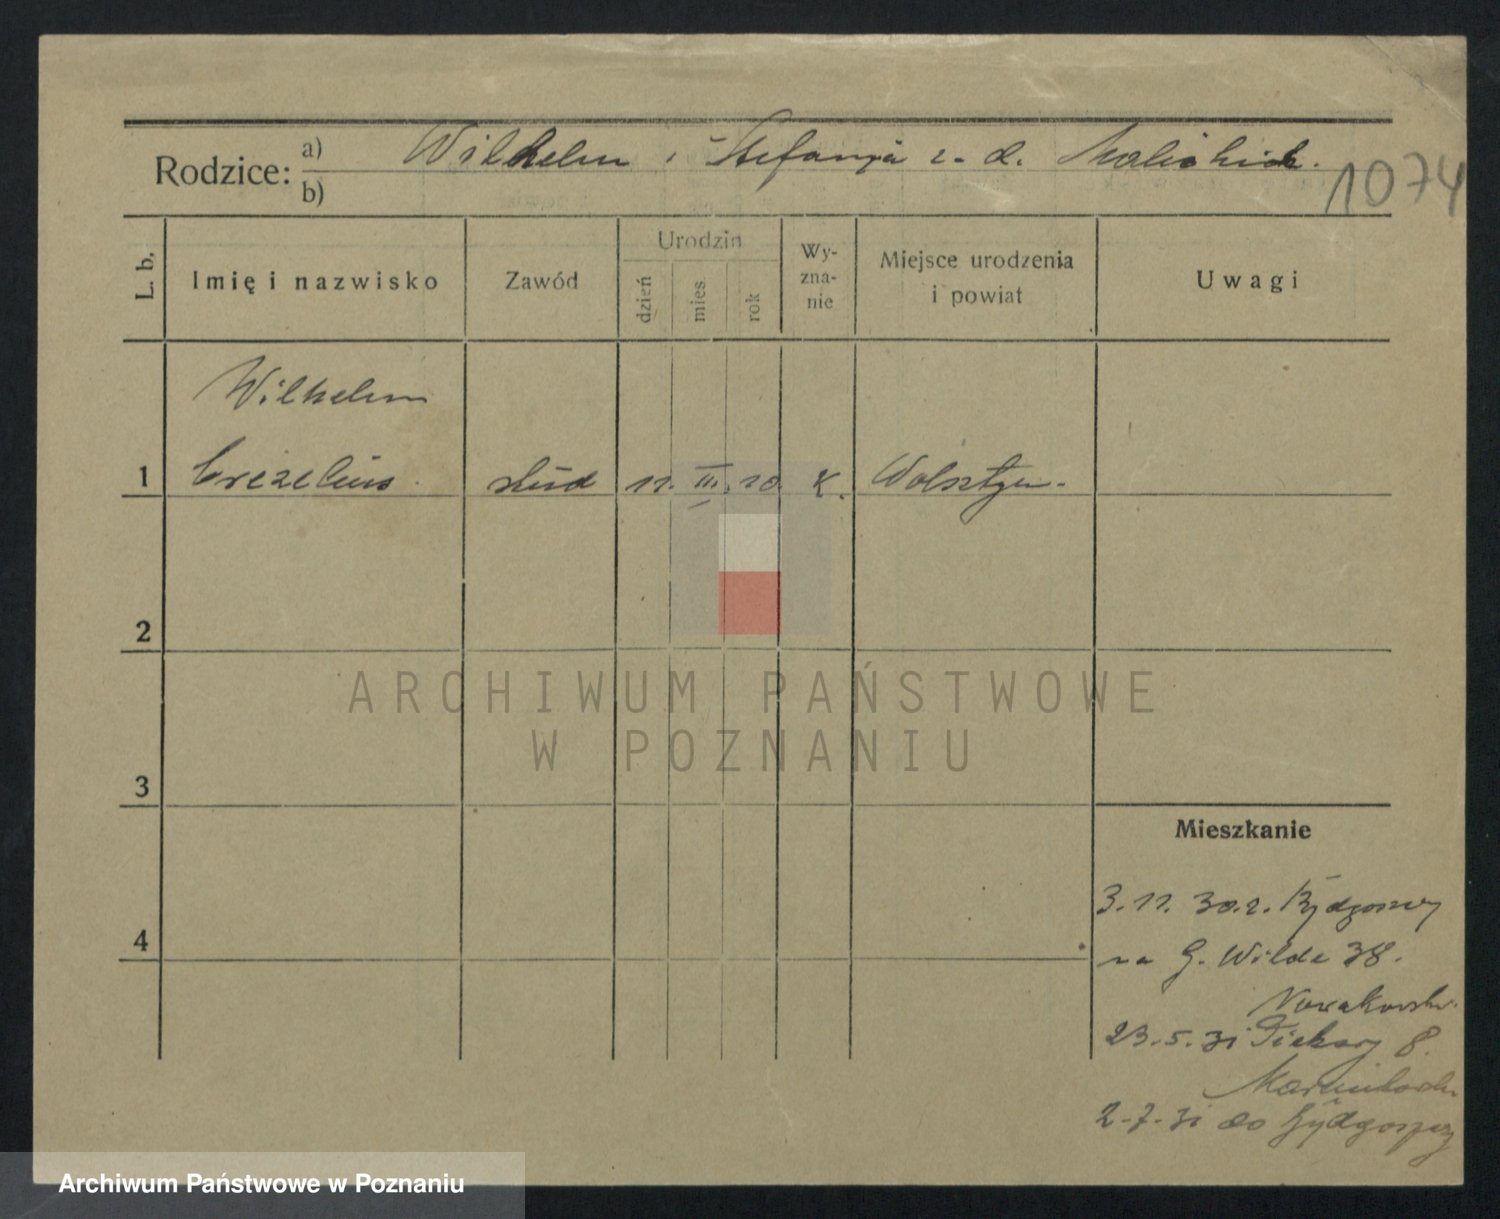 Rodzice: a) Wilhelm i Stefanja z. d.
b)
1074
L. b.
Imię i nazwisko
Zawód
Urodzin
dzień
mies
rok
Wy-
zna-
nie
Miejsce urodzenia
i powiat
Uwagi
Wilhelm
1 Crezelius stud 11. II. 10 K. Wolsztyn
2
3
4
Mieszkanie
3. 11. 30. r. Bydgoszczy
na G. Wilda 38.
23. 5. 31 Piekary 8.
2. 7. 31 do Bydgoszczy
ARCHIWUM PAŃSTWOWE
W POZNANIU
Archiwum Państwowe w Poznaniu